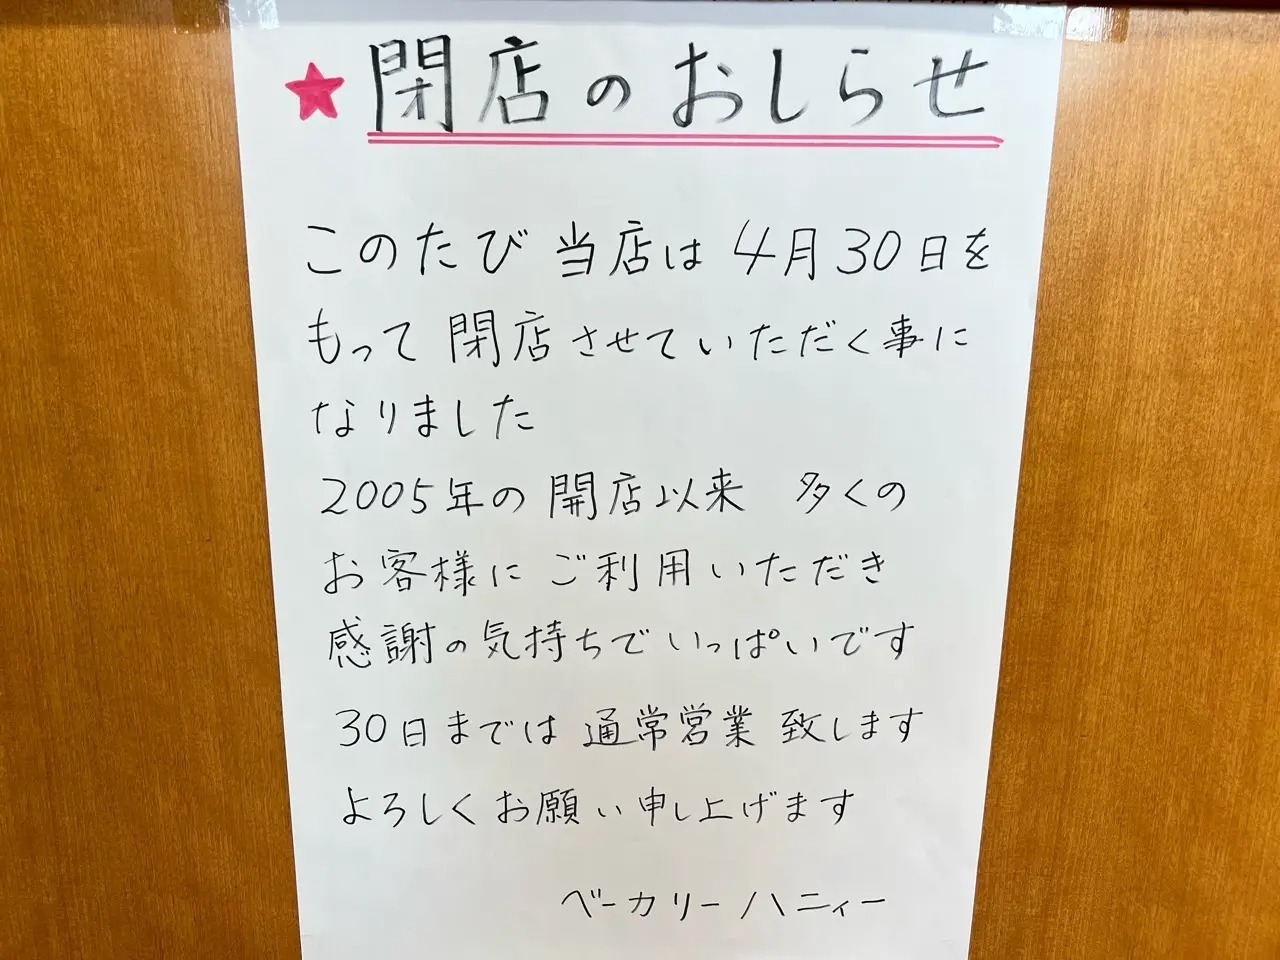 ★閉店のおしらせ
このたび 当店は 4月30日を
もって 閉店させていただく事に
なりました
2005年の 開店以来 多くの
お客様に ご利用いただき
感謝の気持ちでいっぱいです
30日までは 通常営業 致します
よろしくお願い申し上げます
ベーカリーハニィー